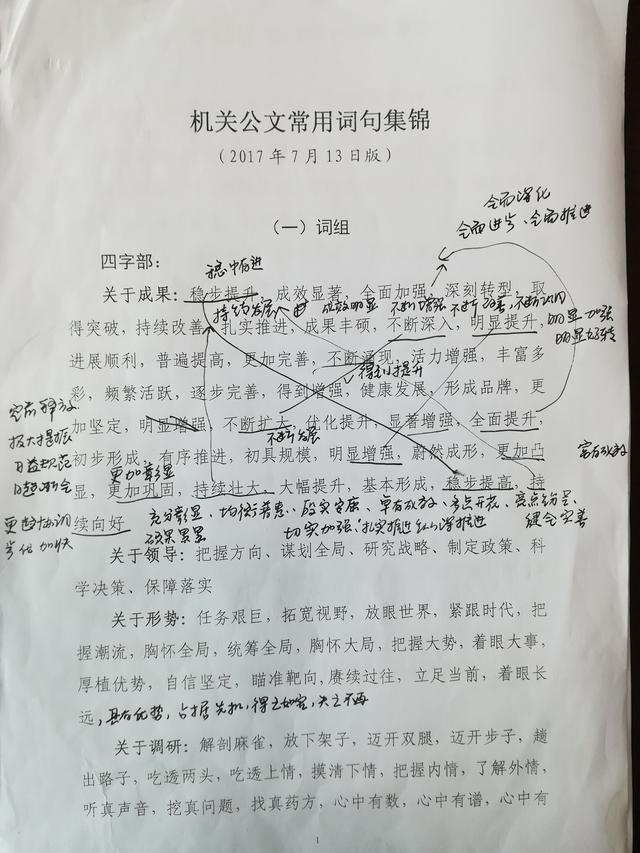 机关公文常用词句集锦
（2017年7月13日版）
全面深化
全面进步、全面推进
（一）词组
四字部：
稳中有进
关于成果：稳步提升，成效显著，全面加强，深刻转型，取
持续发展
成效明显 不断增强 不断改善，不断巩固
得突破，持续改善，扎实推进，成果丰硕，不断深入，明显提升，
明显加强
明显好转
进展顺利，普遍提高，更加完善，不断涌现，活力增强，丰富多
得到提升
彩，频繁活跃，逐步完善，得到增强，健康发展，形成品牌，更
加坚定，明显增强，不断扩大，优化提升，显著增强，全面提升，
不断发展
初步形成，有序推进，初具规模，明显增强，蔚然成形，更加凸
富有成效
更加彰显
显，更加巩固，持续壮大，大幅提升，基本形成，稳步提高，持
日益规范
续向好
充分彰显、均衡普惠、殷实安康、卓有成效、多点开花、亮点纷呈、
硕果累累
切实加强，扎实推进，纵深推进
健全完善
更趋协调
步伐加快
关于领导：把握方向、谋划全局、研究战略、制定政策、科
学决策、保障落实
关于形势：任务艰巨，拓宽视野，放眼世界，紧跟时代，把
握潮流，胸怀全局，统筹全局，胸怀大局，把握大势，着眼大事，
厚植优势，自信坚定，瞄准靶向，赓续过往，立足当前，着眼长
远，具有优势，占据先机，得之如宝，失之不再
关于调研：解剖麻雀，放下架子，迈开双腿，迈开步子，趟
出路子，吃透两头，吃透上情，摸清下情，把握内情，了解外情，
听真声音，挖真问题，找真药方，心中有数，心中有谱，心中有
1